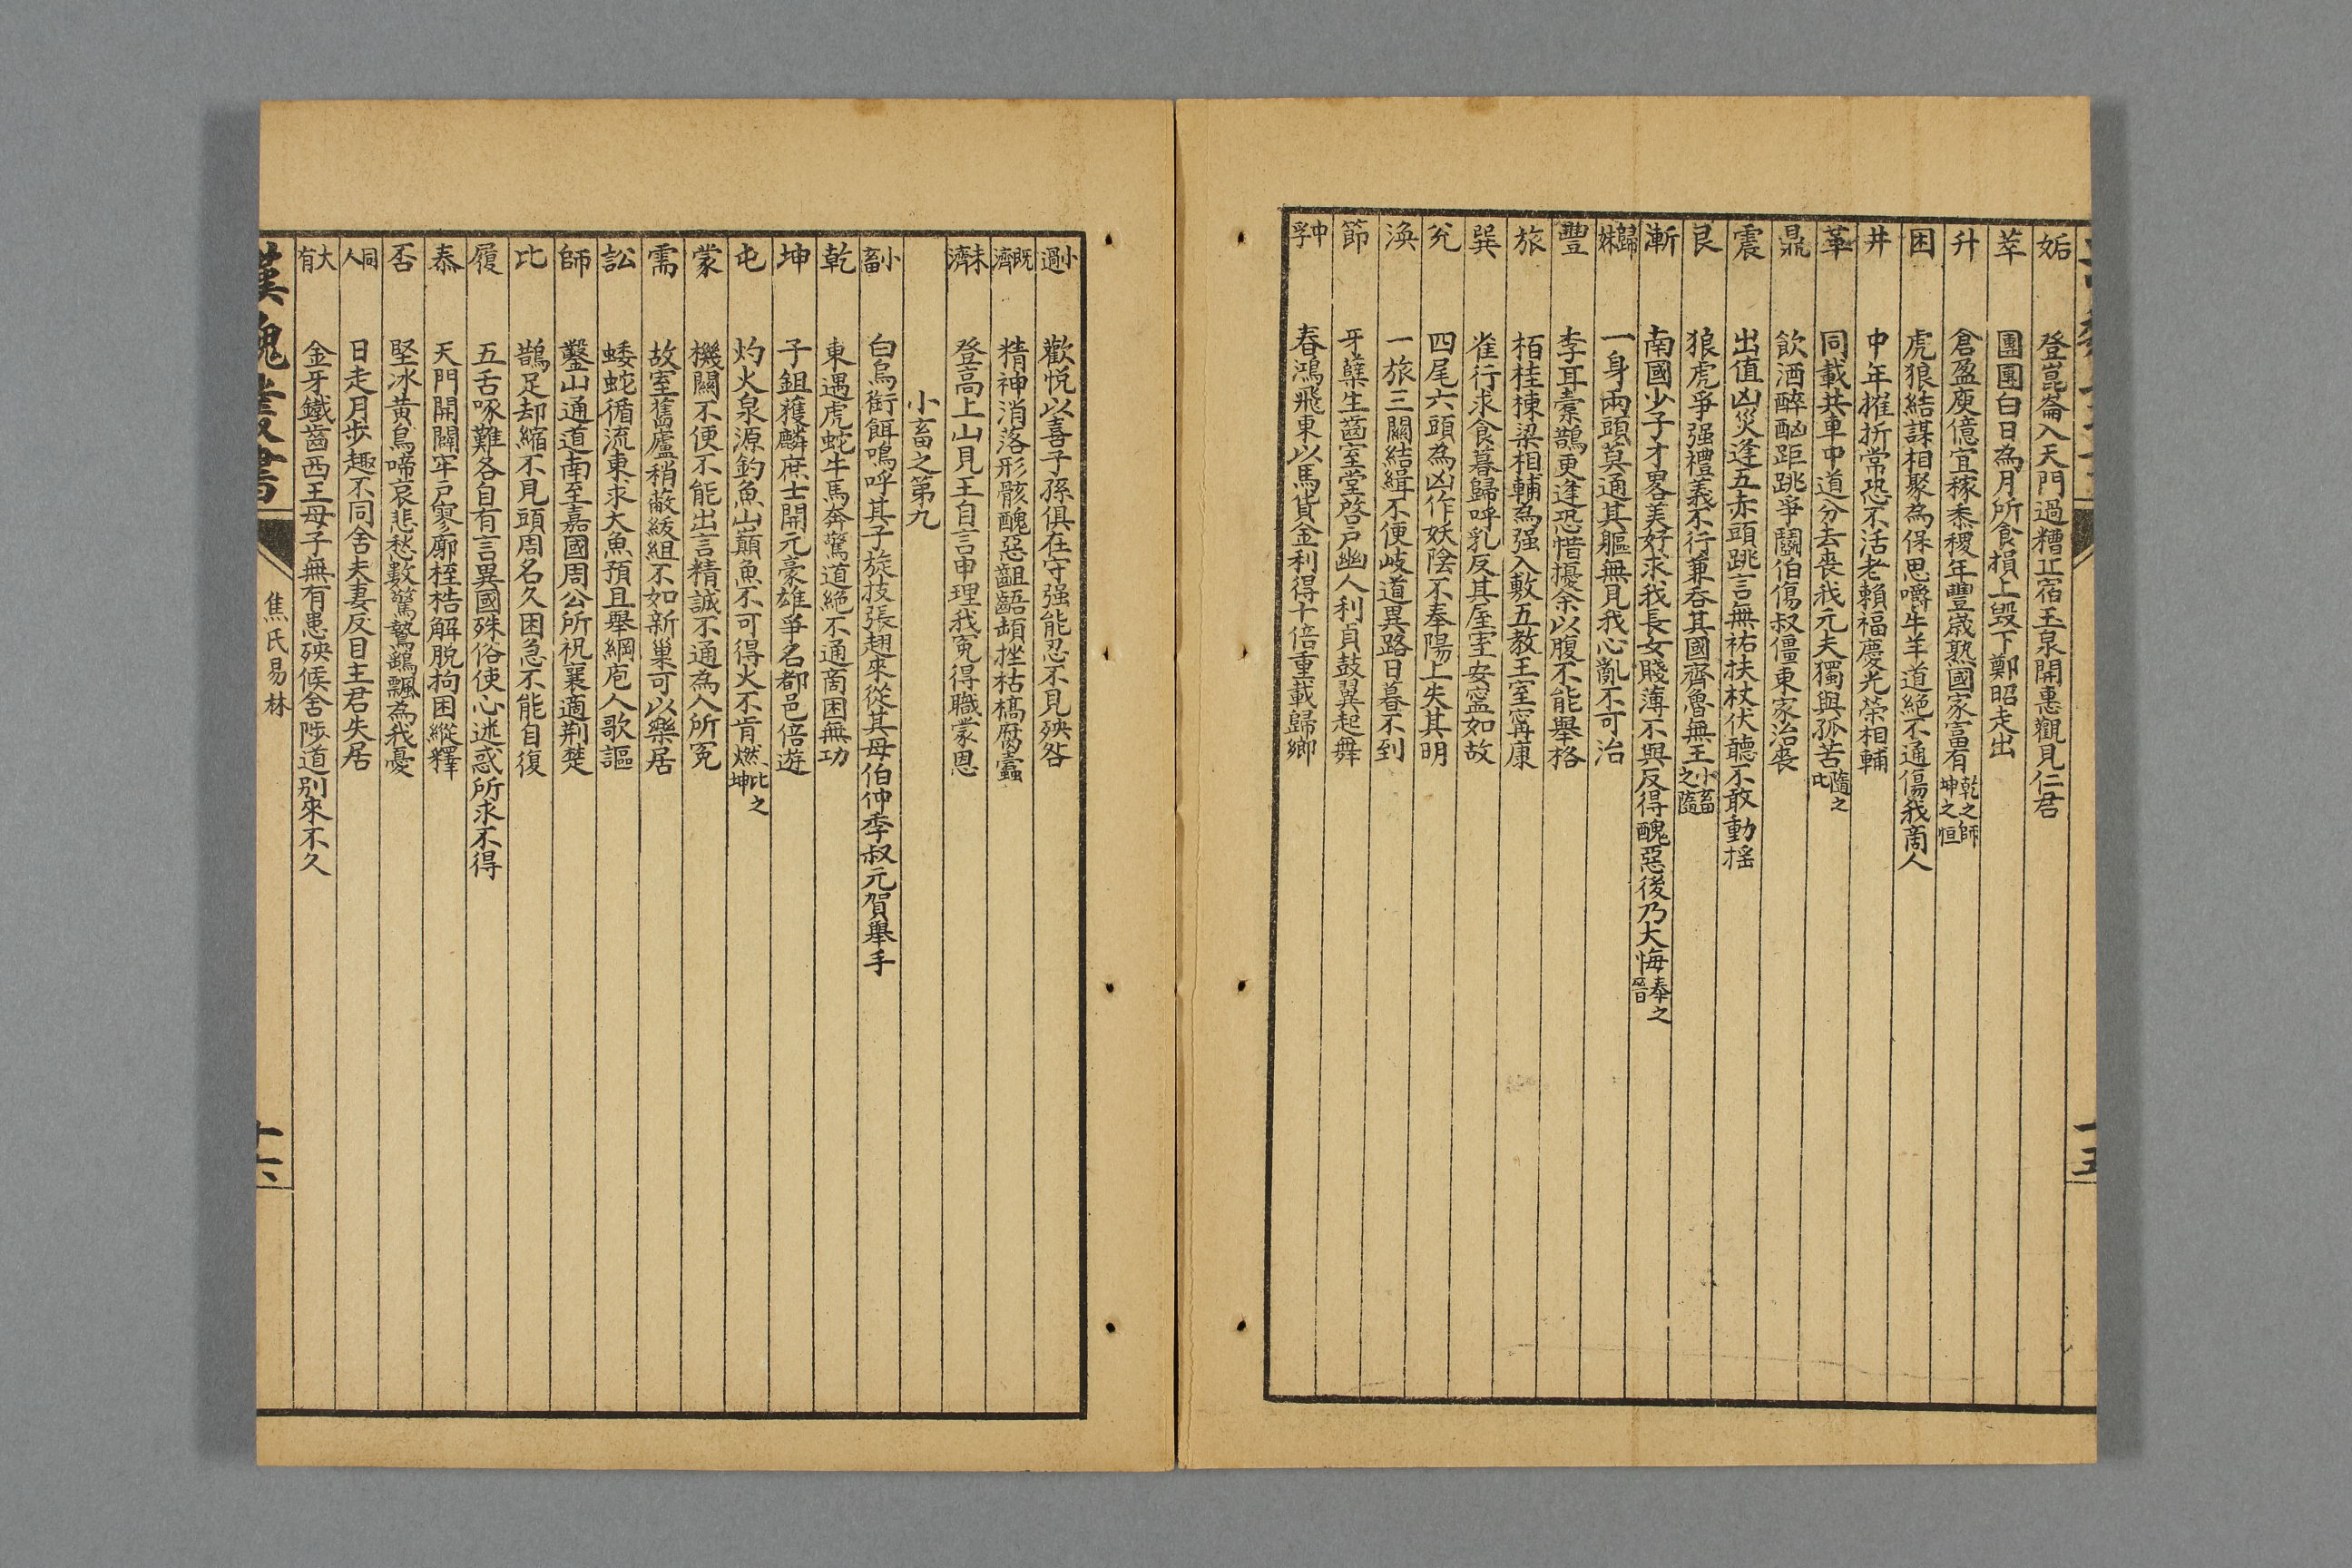 姤 登崑崙入天門過糟丘宿玉泉開惠觀見仁君
萃 團團白日為月所食損上毀下鄭昭走出
升 倉盈庾億宜稼黍稷年豐歲熟國家富有乾之師坤之恒
困 虎狼結謀相聚為保思嚼牛羊道絕不通傷我商人
井 中年摧折常恐不活老賴福慶光榮相輔
革 同載共車中道分去喪我元夫獨與孤苦隨之屯
鼎 飲酒醉酗距跳爭鬭伯傷叔僵東家治喪
震 出值凶災逢五赤頭跳言無祐扶杖伏聽不敢動搖
艮 狼虎爭强禮義不行兼吞其國齊魯無王小畜之隨
漸 南國少子才畧美好求我長女賤薄不與反得醜惡後乃大悔
歸妹 一身兩頭莫通其軀無見我心亂不可治
豐 李耳彙鵲更逢恐惜擾余以腹不能舉格
旅 栢桂棟梁相輔為强入敷五教王室甯康
巽 雀行求食暮歸呼乳反其屋室安寍如故
兌 四尾六頭為凶作妖陰不奉陽上失其明
渙 一旅三關結緝不便岐道異路日暮不到
節 牙蘖生齒室堂啓戶幽人利貞鼓翼起舞
中孚 春鴻飛東以馬貨金利得十倍重載歸鄉
小過 歡悅以喜子孫俱在守强能忍不見殃咎
既濟 精神消落形骸醜惡齟齬頓挫枯槁腐蠹
未濟 登高上山見王自言申理我寃得職蒙恩
小畜之第九
小畜 白鳥銜餌鳴呼其子旋技張趐來從其母伯仲季叔元賀舉手
乾 東遇虎蛇牛馬奔驚道絕不通商困無功
坤 子鉏獲麟庶士開元豪雄爭名都邑倍遊
屯 灼火泉源釣魚山巔魚不可得火不肯燃比之坤
蒙 機關不便不能出言精誠不通為人所寃
需 故室舊廬稍蔽綏組不如新巢可以樂居
訟 蝼蛇循流東求大魚預且舉綱庖人歌謳
師 鑿山通道南至嘉國周公所祝襄適荆楚
比 鵲足却縮不見頭周名久困急不能自復
履 五舌啄難各自有言異國殊俗使心迷惑所求不得
泰 天門開闢牢戶寥廓桎梏解脫拘困縱釋
否 堅冰黃鳥啼哀悲愁數驚鷙鷂飄為我憂
同人 日走月步趣不同舍夫妻反目主君失居
大有 金牙鐵齒西王母子無有患殃候舍陟道别來不久
漢魏叢書 焦氏易林 十六